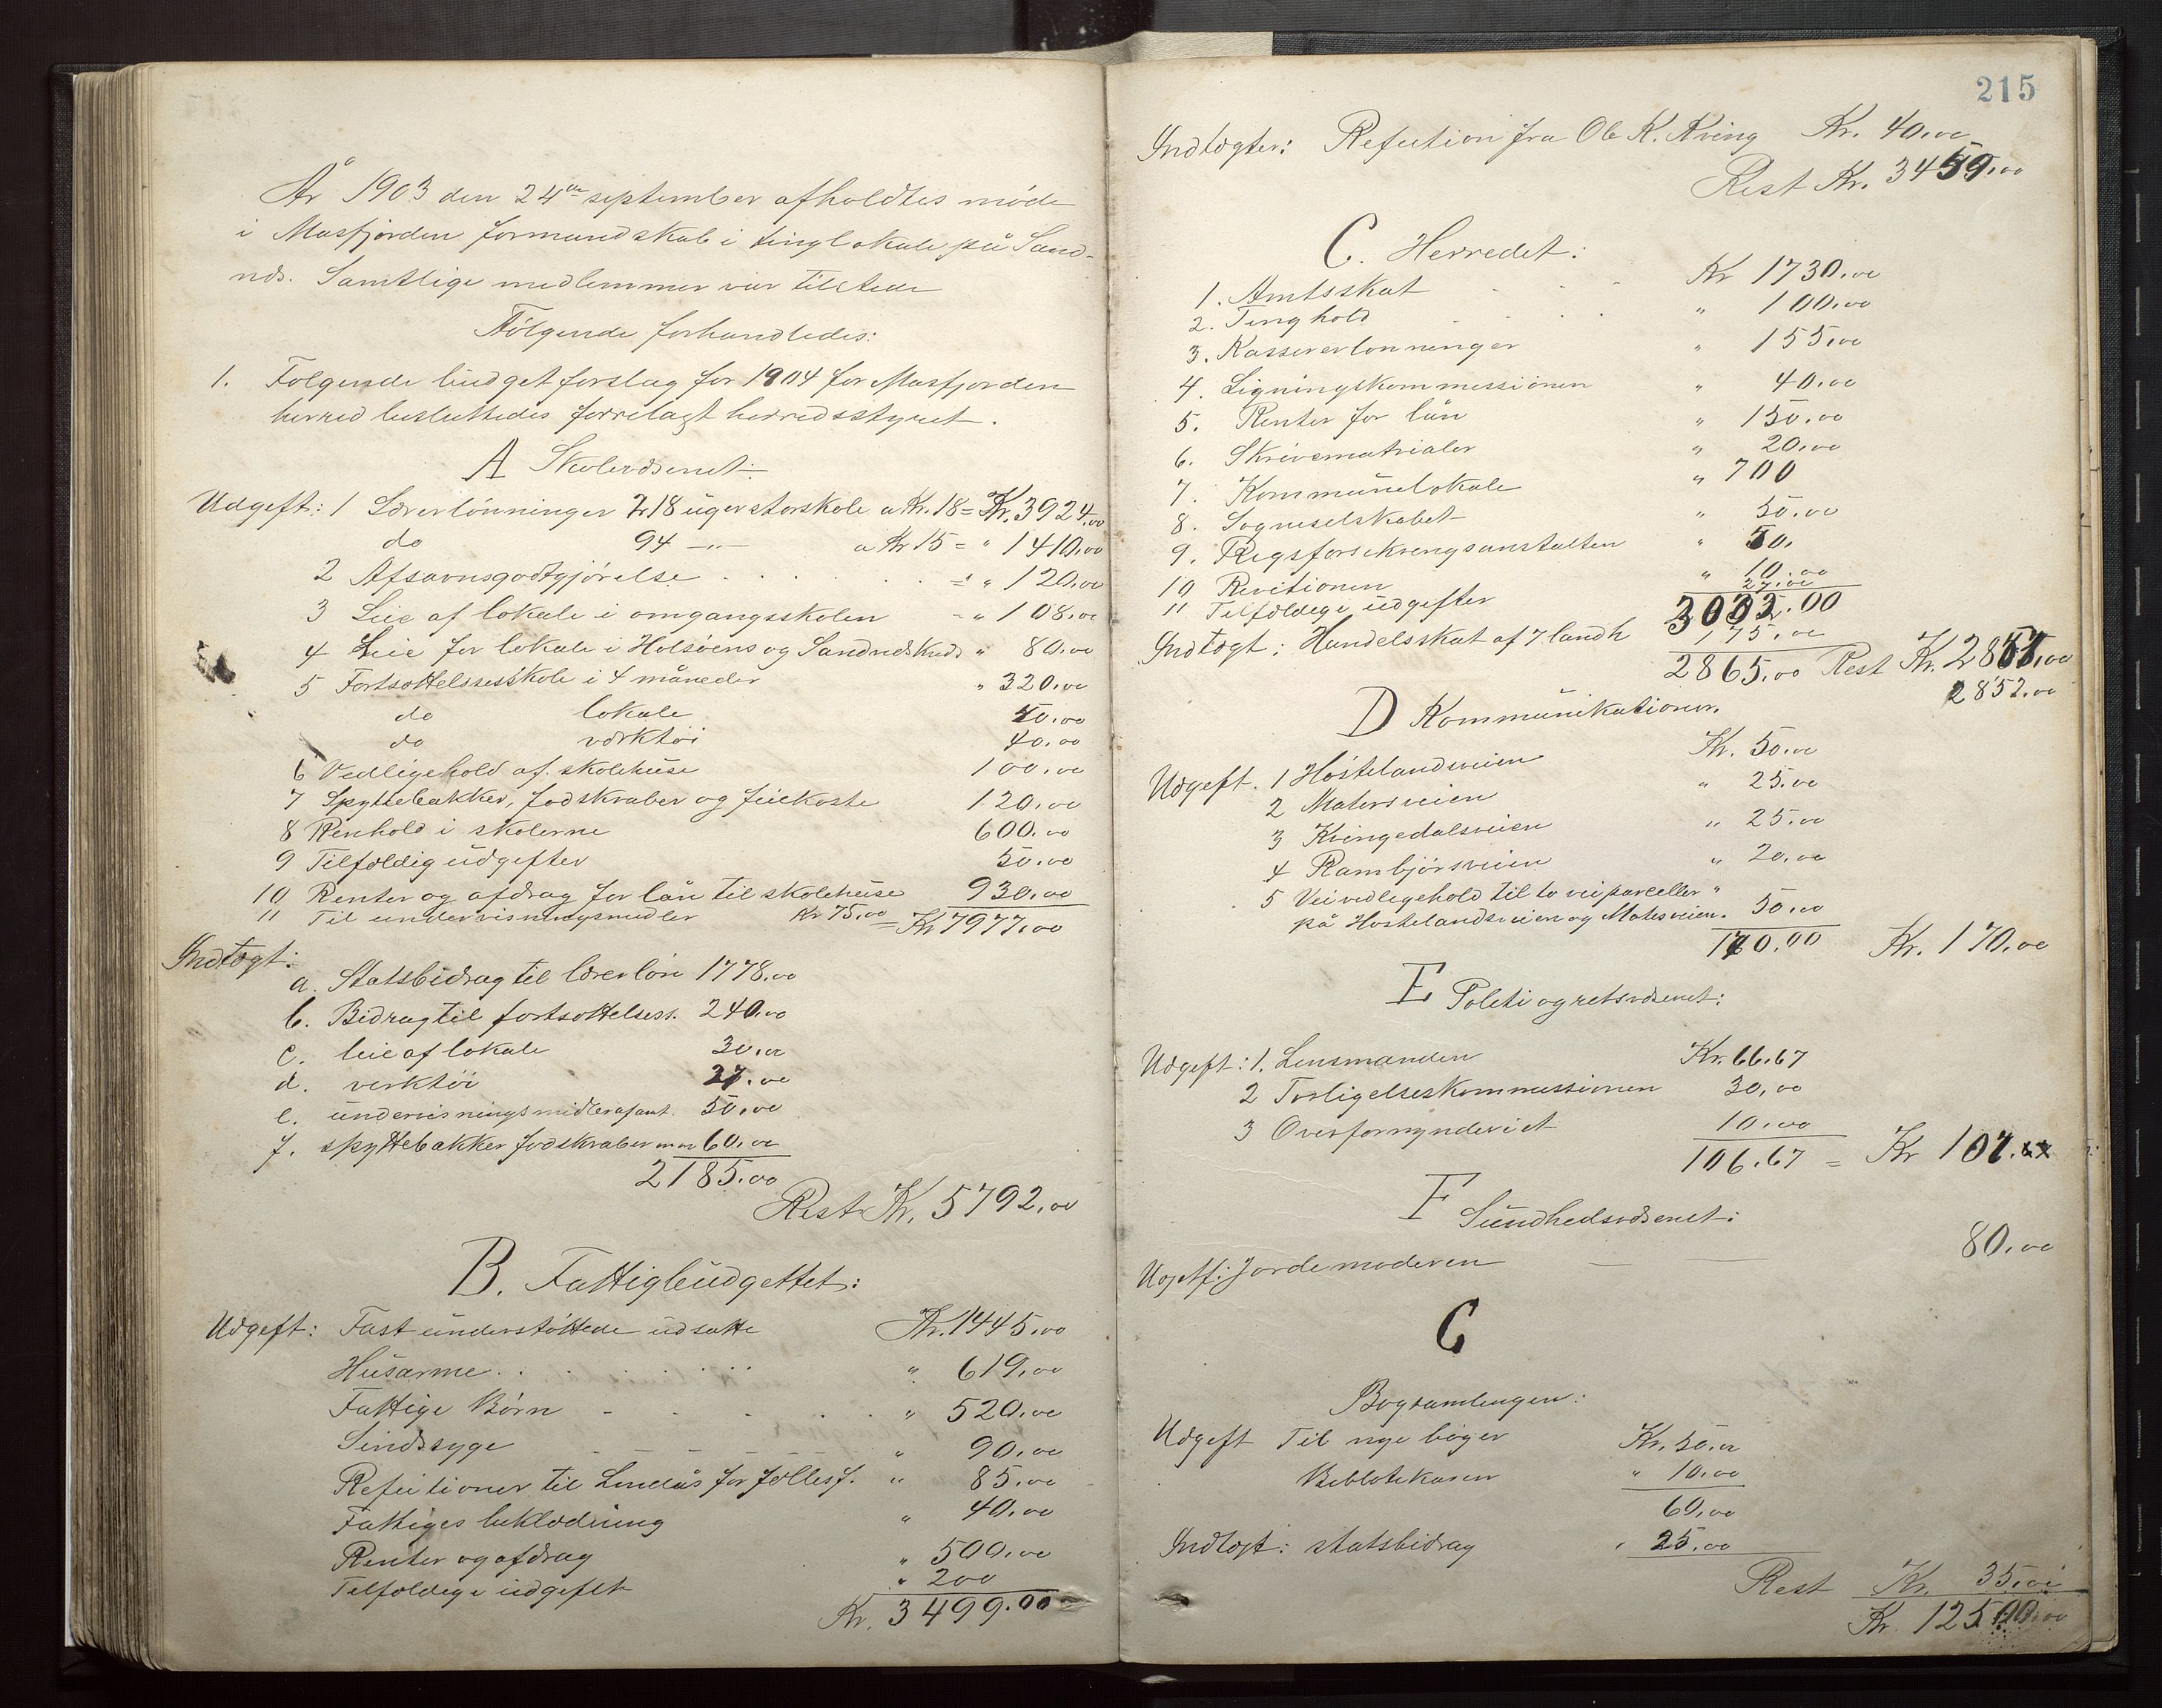 År 1903 den 24de september afholdtes møde
i Masfjorden formandskab i tinglokale på Sand-
næs. Samtlige medlemmer var tilstede
Følgende forhandledes:
1. Følgende budgetforslag for 1904 for Masfjorden
herred besluttedes forrelagt herredsstyret.
A Skolevæsenet:
Udgift: 1 Lærerlønninger 218 uger storskole a Kr. 18 = Kr. 3924,00
do 94 -"- a Kr 15 = " 1410,00
2 Afsavnsgodtgjørelse = " 120,00
3 Leie af lokale i omgangsskolen - " 108,00
4 Leie for lokale i Holsøens og Sandnæs Kreds " 80,00
5 Fortsættelsesskole i 4 måneder " 320,00
do lokale 50,00
do værktøi 40,00
6 Vedligehold af skolehuse 100,00
7 Spyttebakker, fodskraber og feiekoste 120,00
8 Renhold i skolerne 600,00
9 Tilfældig udgifter 50,00
10 Renter og afdrag for lån til skolehuse 930,00
11 Til undervisningsmidler Kr 75,00 = Kr 7977,00
Indtægt:
a. Statsbidrag til lærerløn 1778,00
b. Bidrag til fortsættelsess. 240,00
c. leie af lokale 30,00
d. verktøi 27,00
e. undervisningsmidler af amt. 50,00
f. spyttebakker fodskraber m m 60,00
2185,00
Rest Kr. 5792,00
B. Fattigbudgettet:
Udgift: Fast understøttede udsatte Kr. 1445,00
Husarme " 619,00
Fattige Børn " 520,00
Sindssyge " 90,00
Refutioner til Lindås for fællesf. " 85,00
Fattiges beklædning " 40,00
Renter og afdrag " 500,00
Tilfældige udgift " 200
Kr. 3499.00
215
Indtægter: Refution fra Ole K. Kving Kr. 40,00
Rest Kr. 3459,00
C. Herredet:
1. Amtsskat Kr 1730,00
2. Tinghold " 100,00
3. Kassererlønninger " 155,00
4. Ligningskommessionen " 40,00
5. Renter for lån " 150,00
6. Skrivematrialer " 20,00
7. Kommunelokale " 700
8. Sogneselskabet " 50,00
9. Rigsforsikringsanstalten " 50,
10 Revitionen " 10,00
11 Tilfældige udgifter 27,00
3032.00
Indtægt: Handelsskat af 7 landh 175,00
2865,00 Rest Kr. 2857,00
2857,00
D Kommunikationer.
Udgift. 1 Høstelandsveien Kr. 50,00
2 Matersveien " 25,00
3 Kvingedalsveien " 25,00
4 Rambjørsveien " 20,00
5 Veivedligehold til to veiparceller "
på Høstelandsveien og Matesveien. 50,00
170.00 Kr. 170,00
E Politi og retsvæsenet:
Udgift: 1. Lensmanden Kr. 66.67
2 Forligelseskommissionen 30,00
3 Overformynderiet 10,00
106.67 = Kr 107.
F Sundhedsvæsenet:
Udgift: Jordemoderen 80,00
G
Bogsamlingen:
Udgift Til nye bøger Kr. 50,00
Biblotekaren " 10,00
60,00
Indtægt: statsbidrag " 25,00
Rest Kr. 35,00
Kr. 12500,00